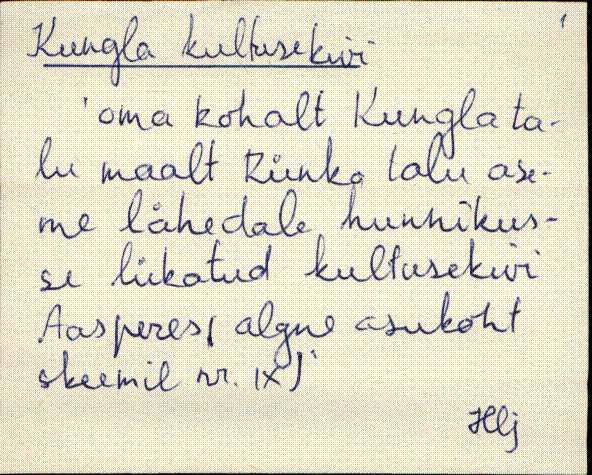 1
Kungla kultusekivi
'oma kohalt Kungla ta-
lu maalt Künka talu ase-
me lähedale hunnikus-
se lükatud kultusekivi
Aasperes( algne asukoht
skeemil nr. IX)'